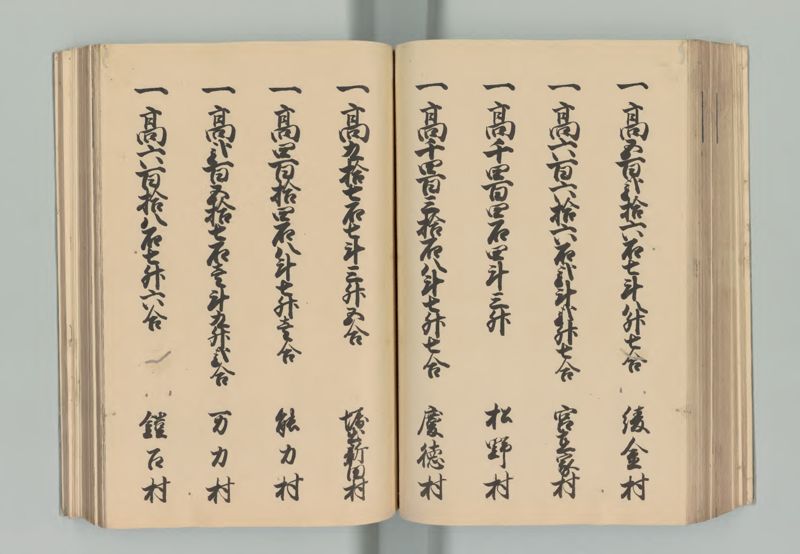 一 高五百弐拾六石七斗八升七合 綾金村
一 高六百六拾六石弐斗弐升七合 宮在家村
一 高千四百四石四斗三升 松野村
一 高千四百三拾石八斗七升七合 慶徳村
一 高九拾七石七斗三升五合 新田村
一 高四百拾四石八斗七升壱合 能力村
一 高弐百五拾七石三斗九升弐合 万力村
一 高六百拾八石七升六合 鐙石村